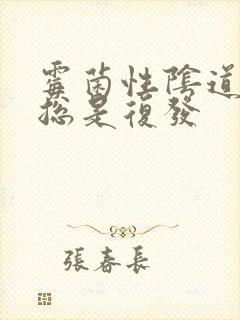 霉菌性陰道
總是復發
張春長